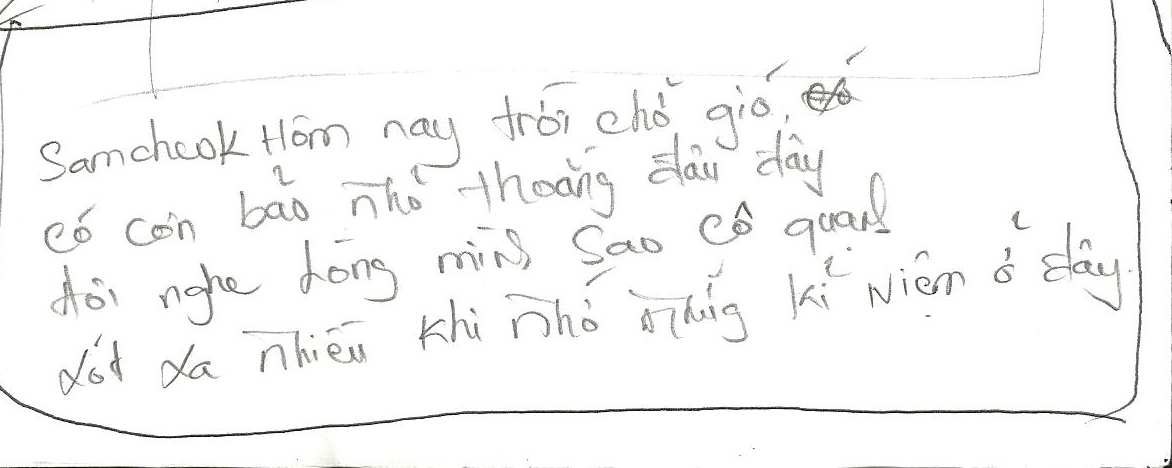 Samcheok Hôm nay trời chở gió.
có cơn bảo nhỏ thoảng đâu đây
tôi nghe lòng mình sao cô quạnh
xót xa nhiều khi nhớ những kỉ niệm ở đây.